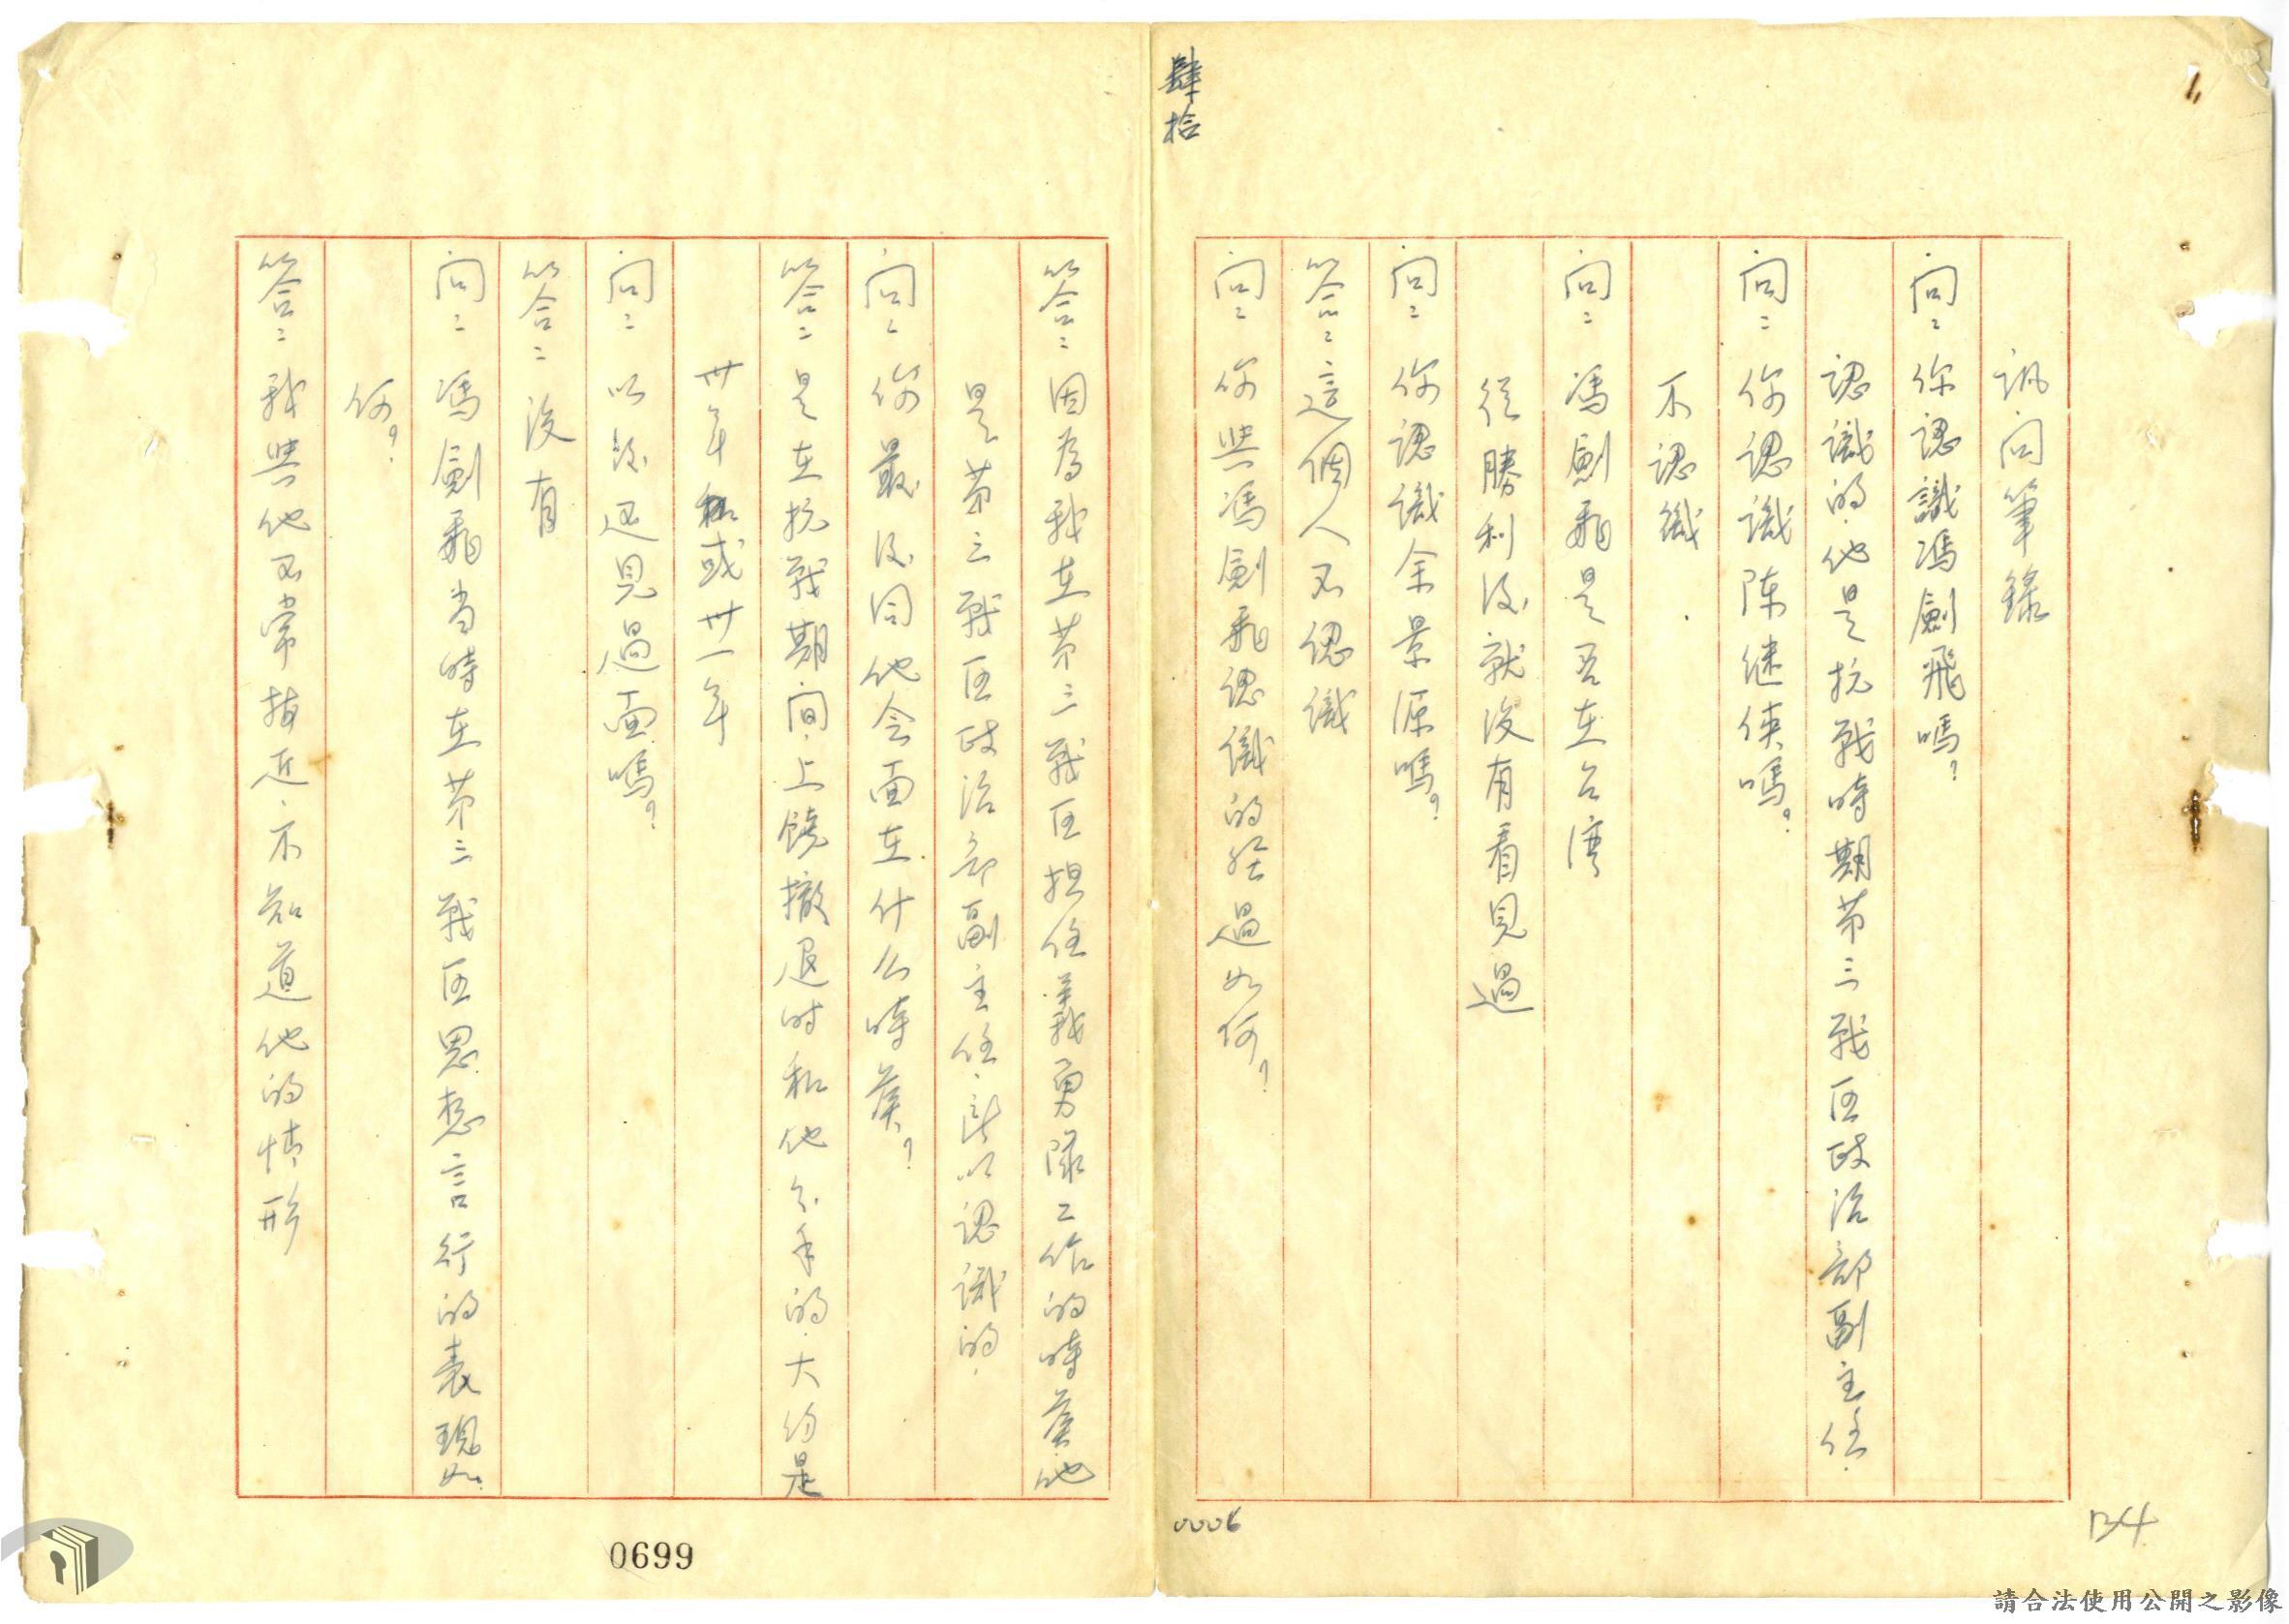 訊问筆錄
问：你認識馮劍飛嗎？
認識的．他是抗戰時期苐三戰区政治部副主任．
问：你認識陈继侠嗎？
不認識．
问：馮劍飛是否在台湾
從勝利後就沒有看見過
问：你認識余景源嗎？
答：這個人不認識
问：你與馮劍飛認識的经過如何？
肆拾
答：因為我在苐三戰区担任義勇隊工作的時候他
是苐三戰区政治部副主任．所以認識的．
问：你最後同他会面在什么時候？
答：是在抗戰期间上饒撤退时和他分手的．大约是
卅年和或卅一年
问：以後还見過面嗎？
答：沒有
问：馮劍飛当時在苐三戰区思想言行的表現如
何？
答：我與他不常接近．不知道他的情形
0006
134
0699
請合法使用公開之影像